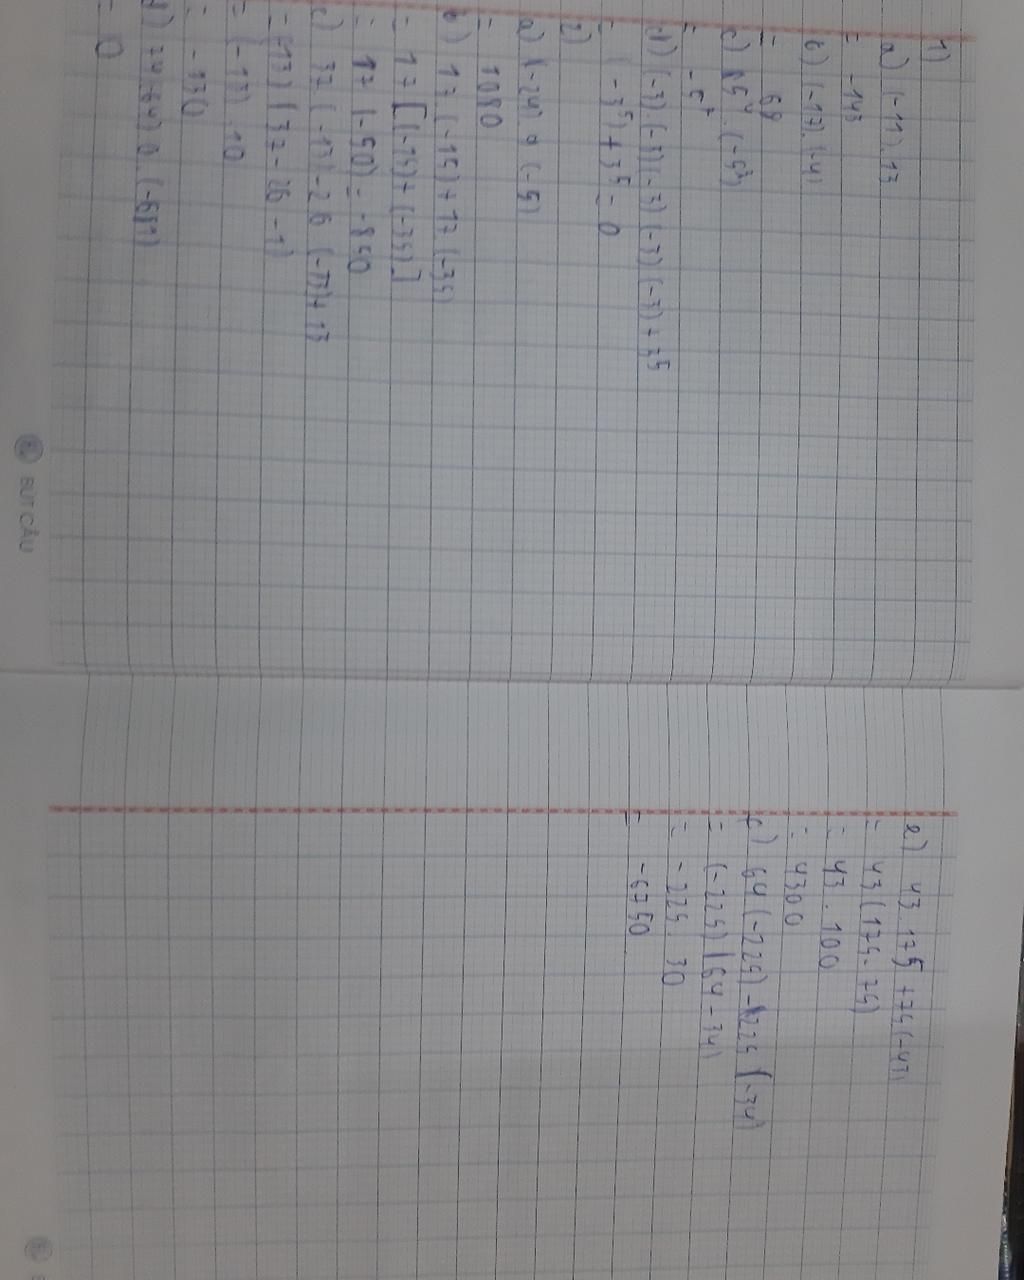 1)
a) (-11).13
= -143
b) (-17).(-4)
= 68
c) 5⁴.(-5³)
= -5⁷
d) (-3).(-3)(-3)(-3)(-3)+3⁵
= (-3⁵)+3⁵ = 0
2)
a) (-24) 9 (-5)
= 1080
b) 17.(-15)+17(-35)
= 17[(-15)+(-35)]
= 17 (-50) = -850
c) 37 (-13)-26 (-13)+13
= (-13) (37-26-1)
= (-13).10
= -130
d)
= 0
BÚT CẦU
e) 43.175+75(-43)
= 43(175-75)
= 43.100
= 4300
64(-225)-225(-34)
= (-225)(64-34)
= -225.30
= -6750